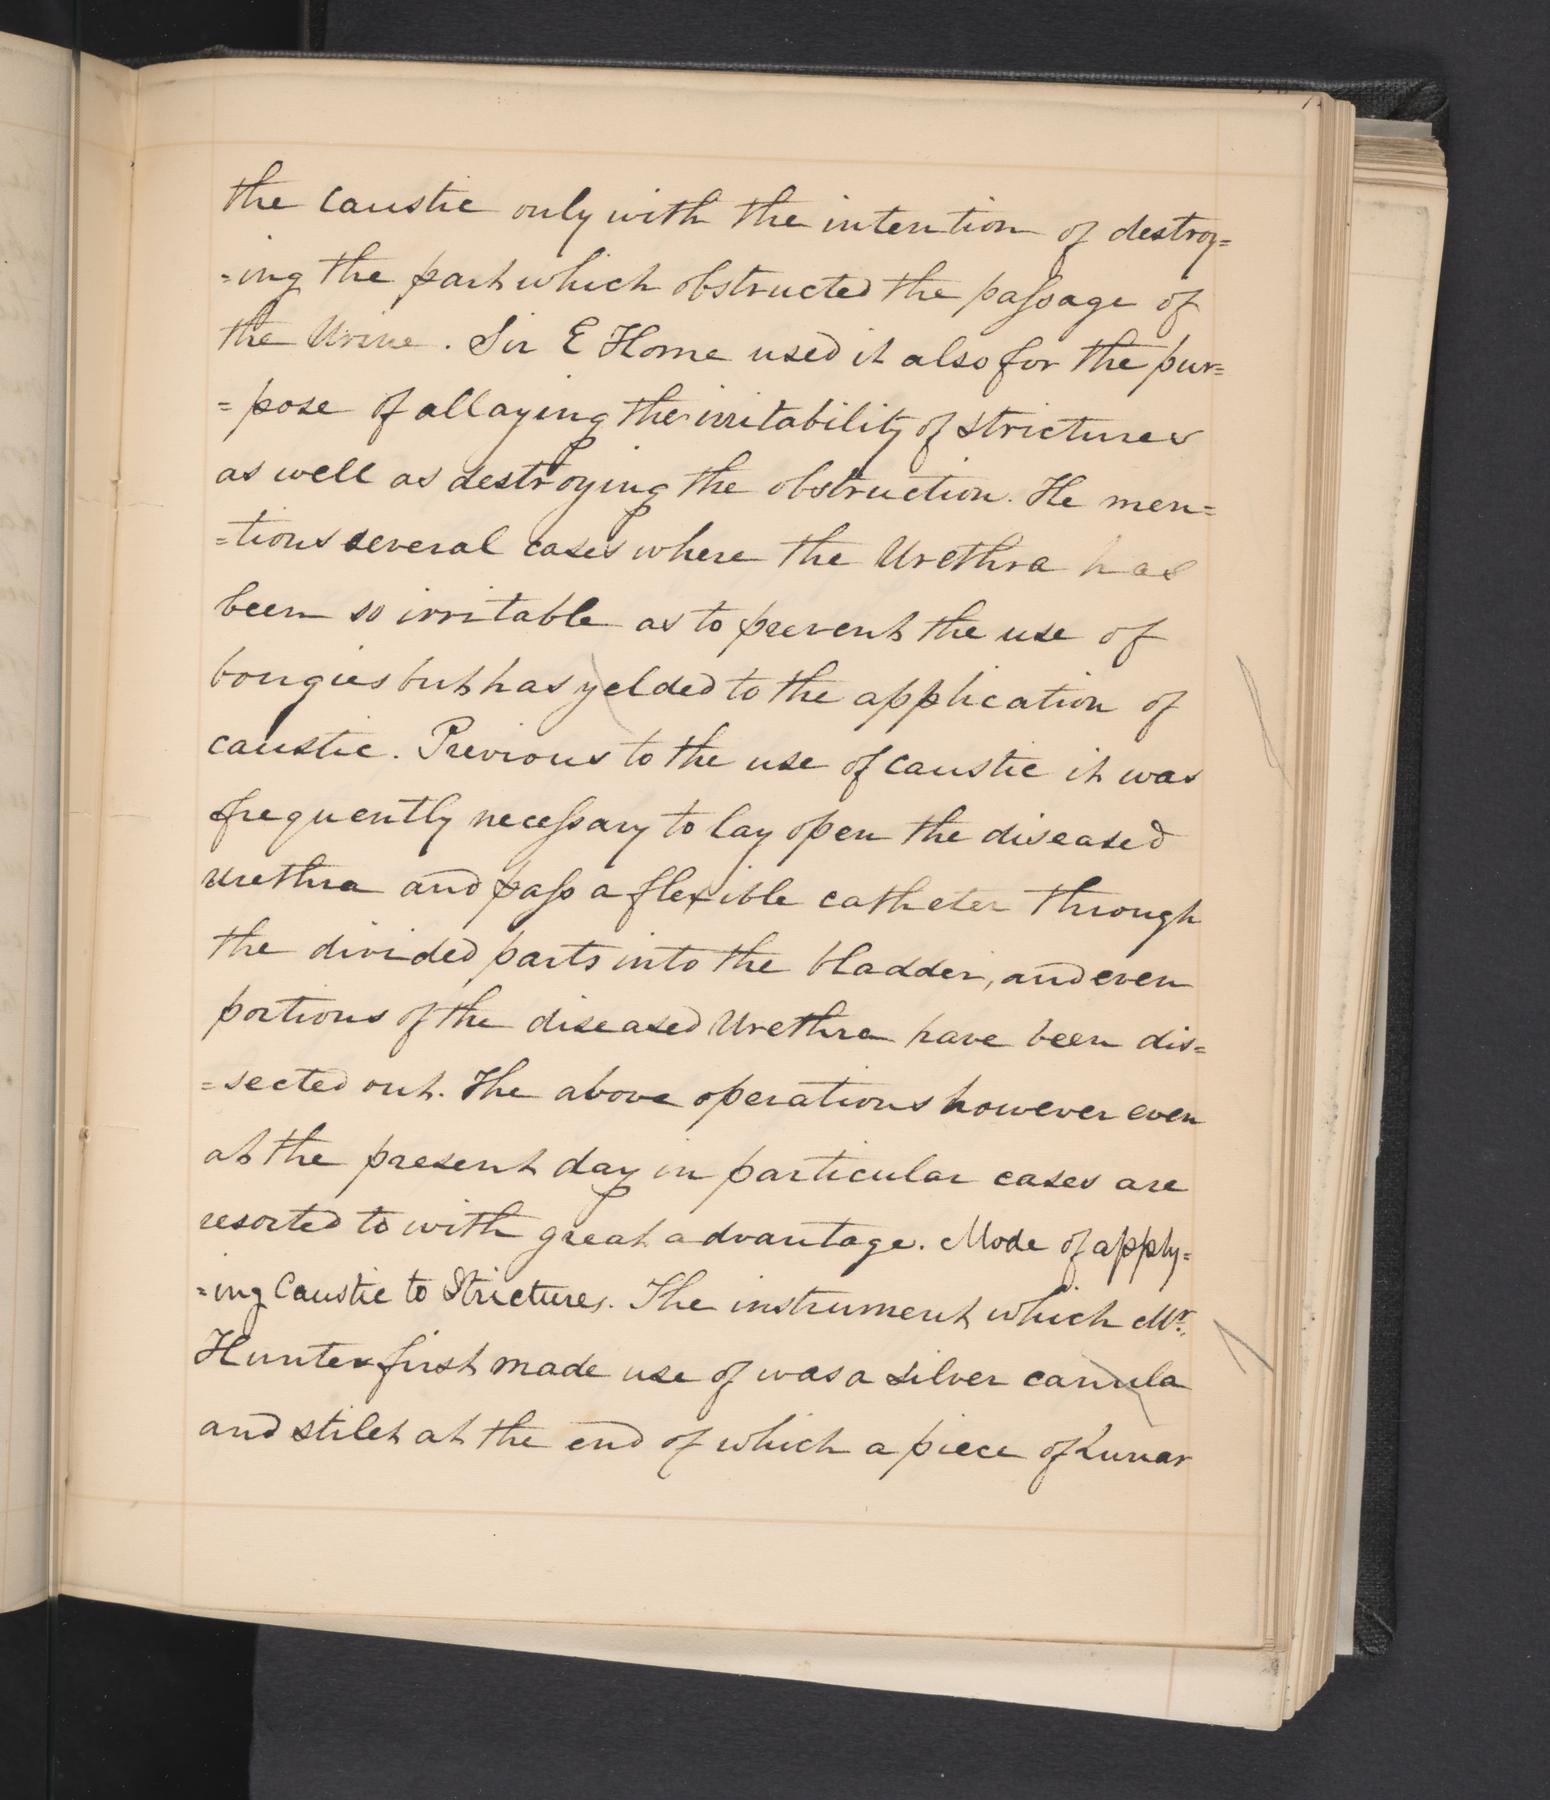 the caustic only with the intention of destroy=
=ing the part which obstructed the paſsage of
the Urine. Sir E Home used it also for the pur=
=pose of allaying the irritability of strictures
as well as destroying the obstruction. He men=
=tions several cases where the Urethra has
been so irritable as to prevent the use of
bougies but has yelded to the application of
caustic. Previous to the use of caustic it was
frequently neceſsary to lay open the diseased
urethra and paſs a flexible catheter through
the divided parts into the bladder, and even
portions of the diseased Urethra have been dis=
=sected out. The above operations however even
at the present day in particular cases are
resorted to with great advantage. Mode of apply=
=ing Caustic to Strictures. The instrument which Mr.
Hunter first made use of was a silver canula
and stilet at the end of which a piece of Lunar